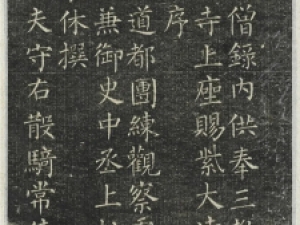 僧錄內供奉三教
寺上座賜紫大達
序
道都團練觀察
兼御史中丞上
休撰
夫守右散騎常